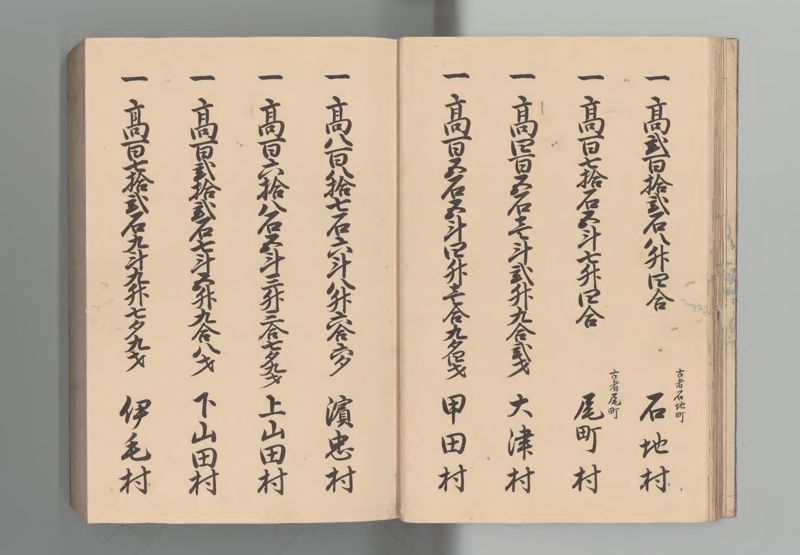 一 高弐百拾弐石八升四合 古者石地町 石地村
一 高百七拾石五斗七升四合 古者尾町 尾町村
一 高四百五石壱斗弐升九合弐才 大津村
一 高百五石五斗四升壱合九夕四才 甲田村
一 高八百八拾七石六斗八升六合六夕 濱忠村
一 高百六拾八石五斗三升三合七夕九才 上山田村
一 高百弐拾弐石七斗五升九合八才 下山田村
一 高百七拾弐石九斗九升七夕九才 伊毛村